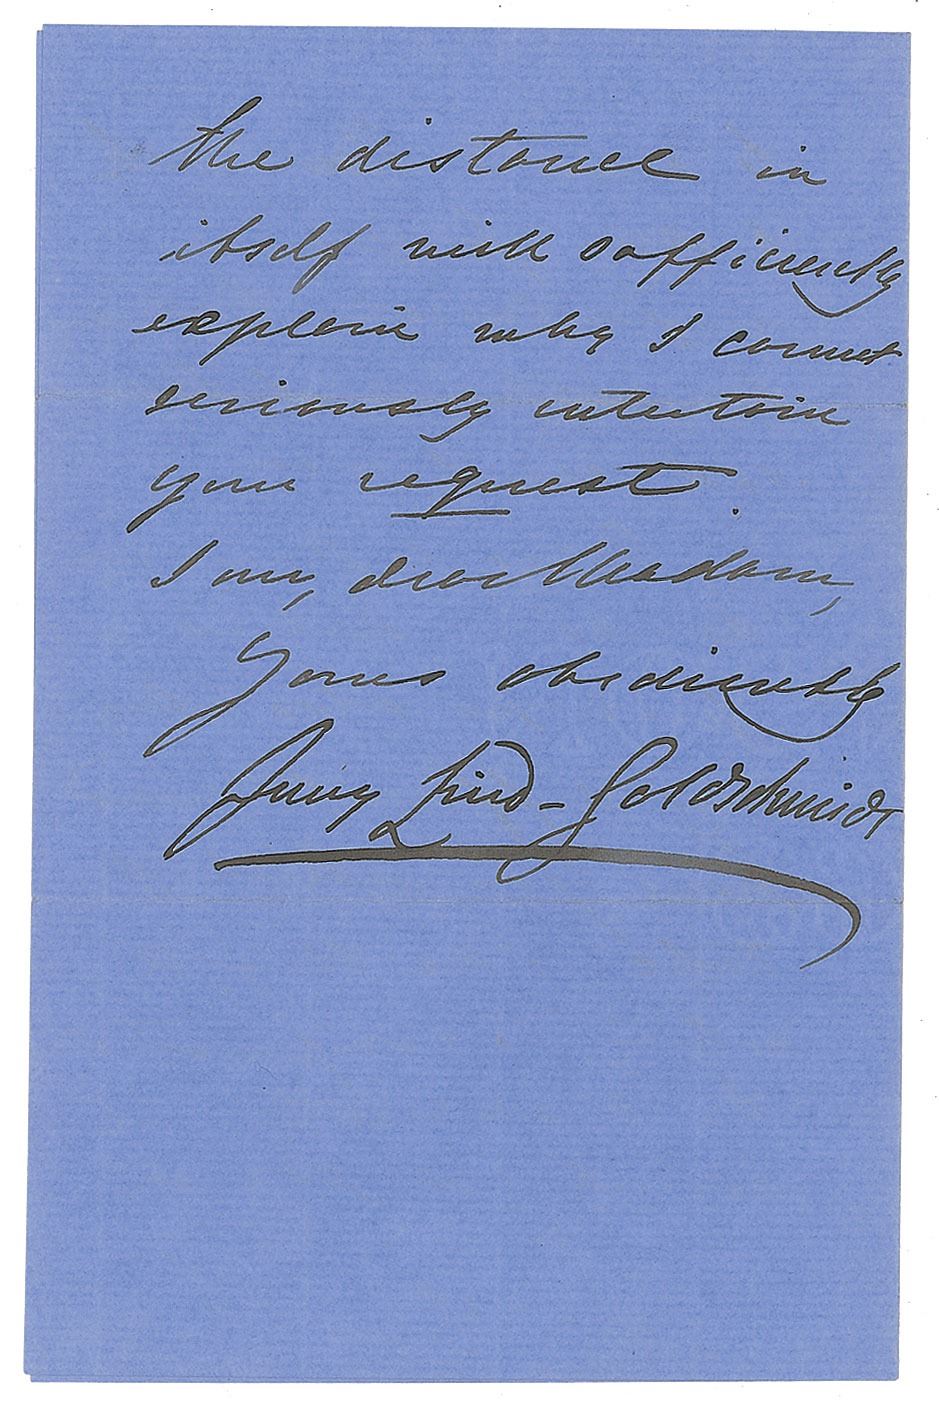 the distance in
itself will sufficiently
explain why I cannot
seriously entertain
your request.
I am, dear Madam,
Yours obediently
Jenny Lind-Goldschmidt